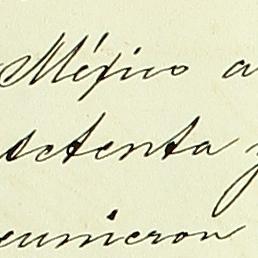 México a
setenta y
eunieron